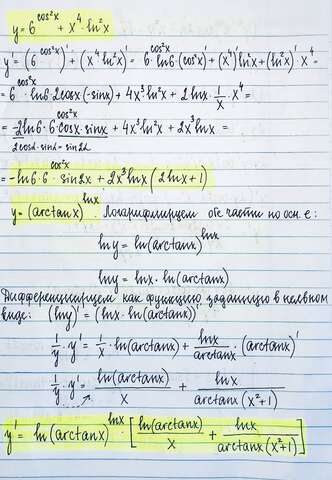 y = 6^{cos²x} + x⁴·ln²x
y' = (6^{cos²x})' + (x⁴ ln²x)' = 6^{cos²x}·ln6·(cos²x)' + (x⁴)' ln²x + (ln²x)' x⁴ =
= 6^{cos²x}·ln6·2cosx·(-sinx) + 4x³ ln²x + 2lnx·1/x·x⁴ =
= -2ln6·6^{cos²x}·cosx·sinx + 4x³ ln²x + 2x³ lnx =
2cosα·sinα = sin2α
= -ln6·6^{cos²x}·sin2x + 2x³ lnx (2lnx+1)
y = (arctanx)^{lnx}. Логарифмируем обе части по осн. e:
lny = ln(arctanx)^{lnx}
lny = lnx·ln(arctanx)
Дифференцируем как функцию заданную в неявном
виде: (lny)' = (lnx·ln(arctanx))'
1/y·y' = 1/x·ln(arctanx) + lnx/arctanx·(arctanx)'
1/y·y' = ln(arctanx)/x + lnx/arctanx(x²+1)
y' = ln(arctanx)^{lnx}·[ln(arctanx)/x + lnx/arctanx(x²+1)]